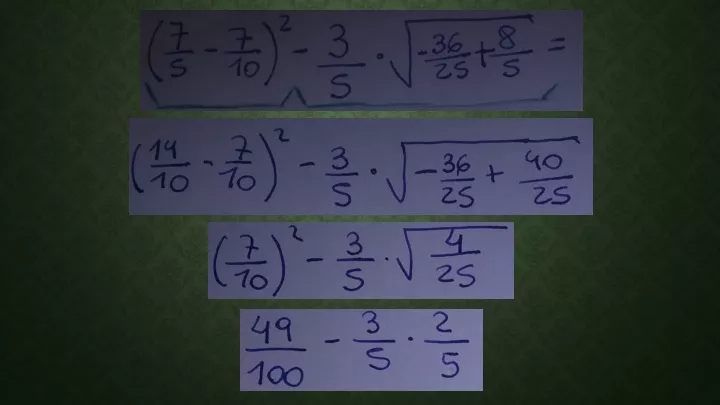 (7/5 - 7/10)² - 3/5 · √(-36/25 + 8/5) =
(14/10 - 7/10)² - 3/5 · √(-36/25 + 40/25)
(7/10)² - 3/5 · √(4/25)
49/100 - 3/5 · 2/5